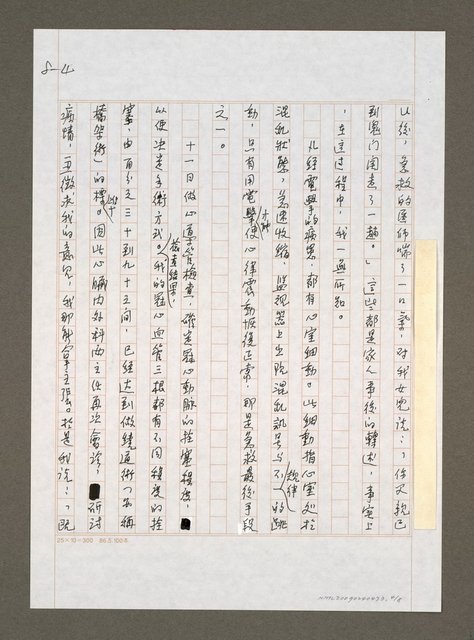 8-4
以後，急救的醫師喘了一口氣，對我女兒說：「你父親已
到鬼門關走了一趟。」這些都是家人事後的轉述，事實上
，在這過程中，我一無所知。
凡經電擊的病患，都有心室細動。此細動指心室處於
混亂狀態，急速收縮，監視器上出現混亂訊號与不規律的跳
動，只有用電擊才能使心律震動恢復正常，那是急救最後手段
之一。
十一日做心導管檢查，確定冠心動脈的拴塞程度，
以便決定手術方式。檢查結果，我的冠心血管三根都有不同程度的拴
塞，由百分之三十到九十五間，已經達到做繞道術（又稱
橋架術）的標準。因此心臟內外科兩主任再次會診，研討
病情，並徵求我的意見，我那能拿主張。於是我說：「既
25×10=300 86.5.100本
NMTL20090200423. 4/8